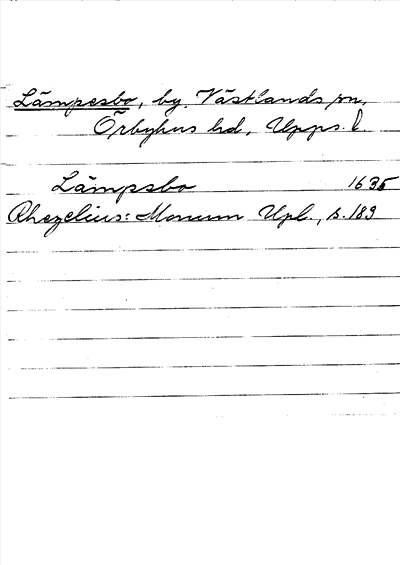 Lämpesbo, by, Västlands sn,
Örbyhus hd, Upps. l.
Lämpsbo 1635
Rhezelius: Monum Upl., s. 189